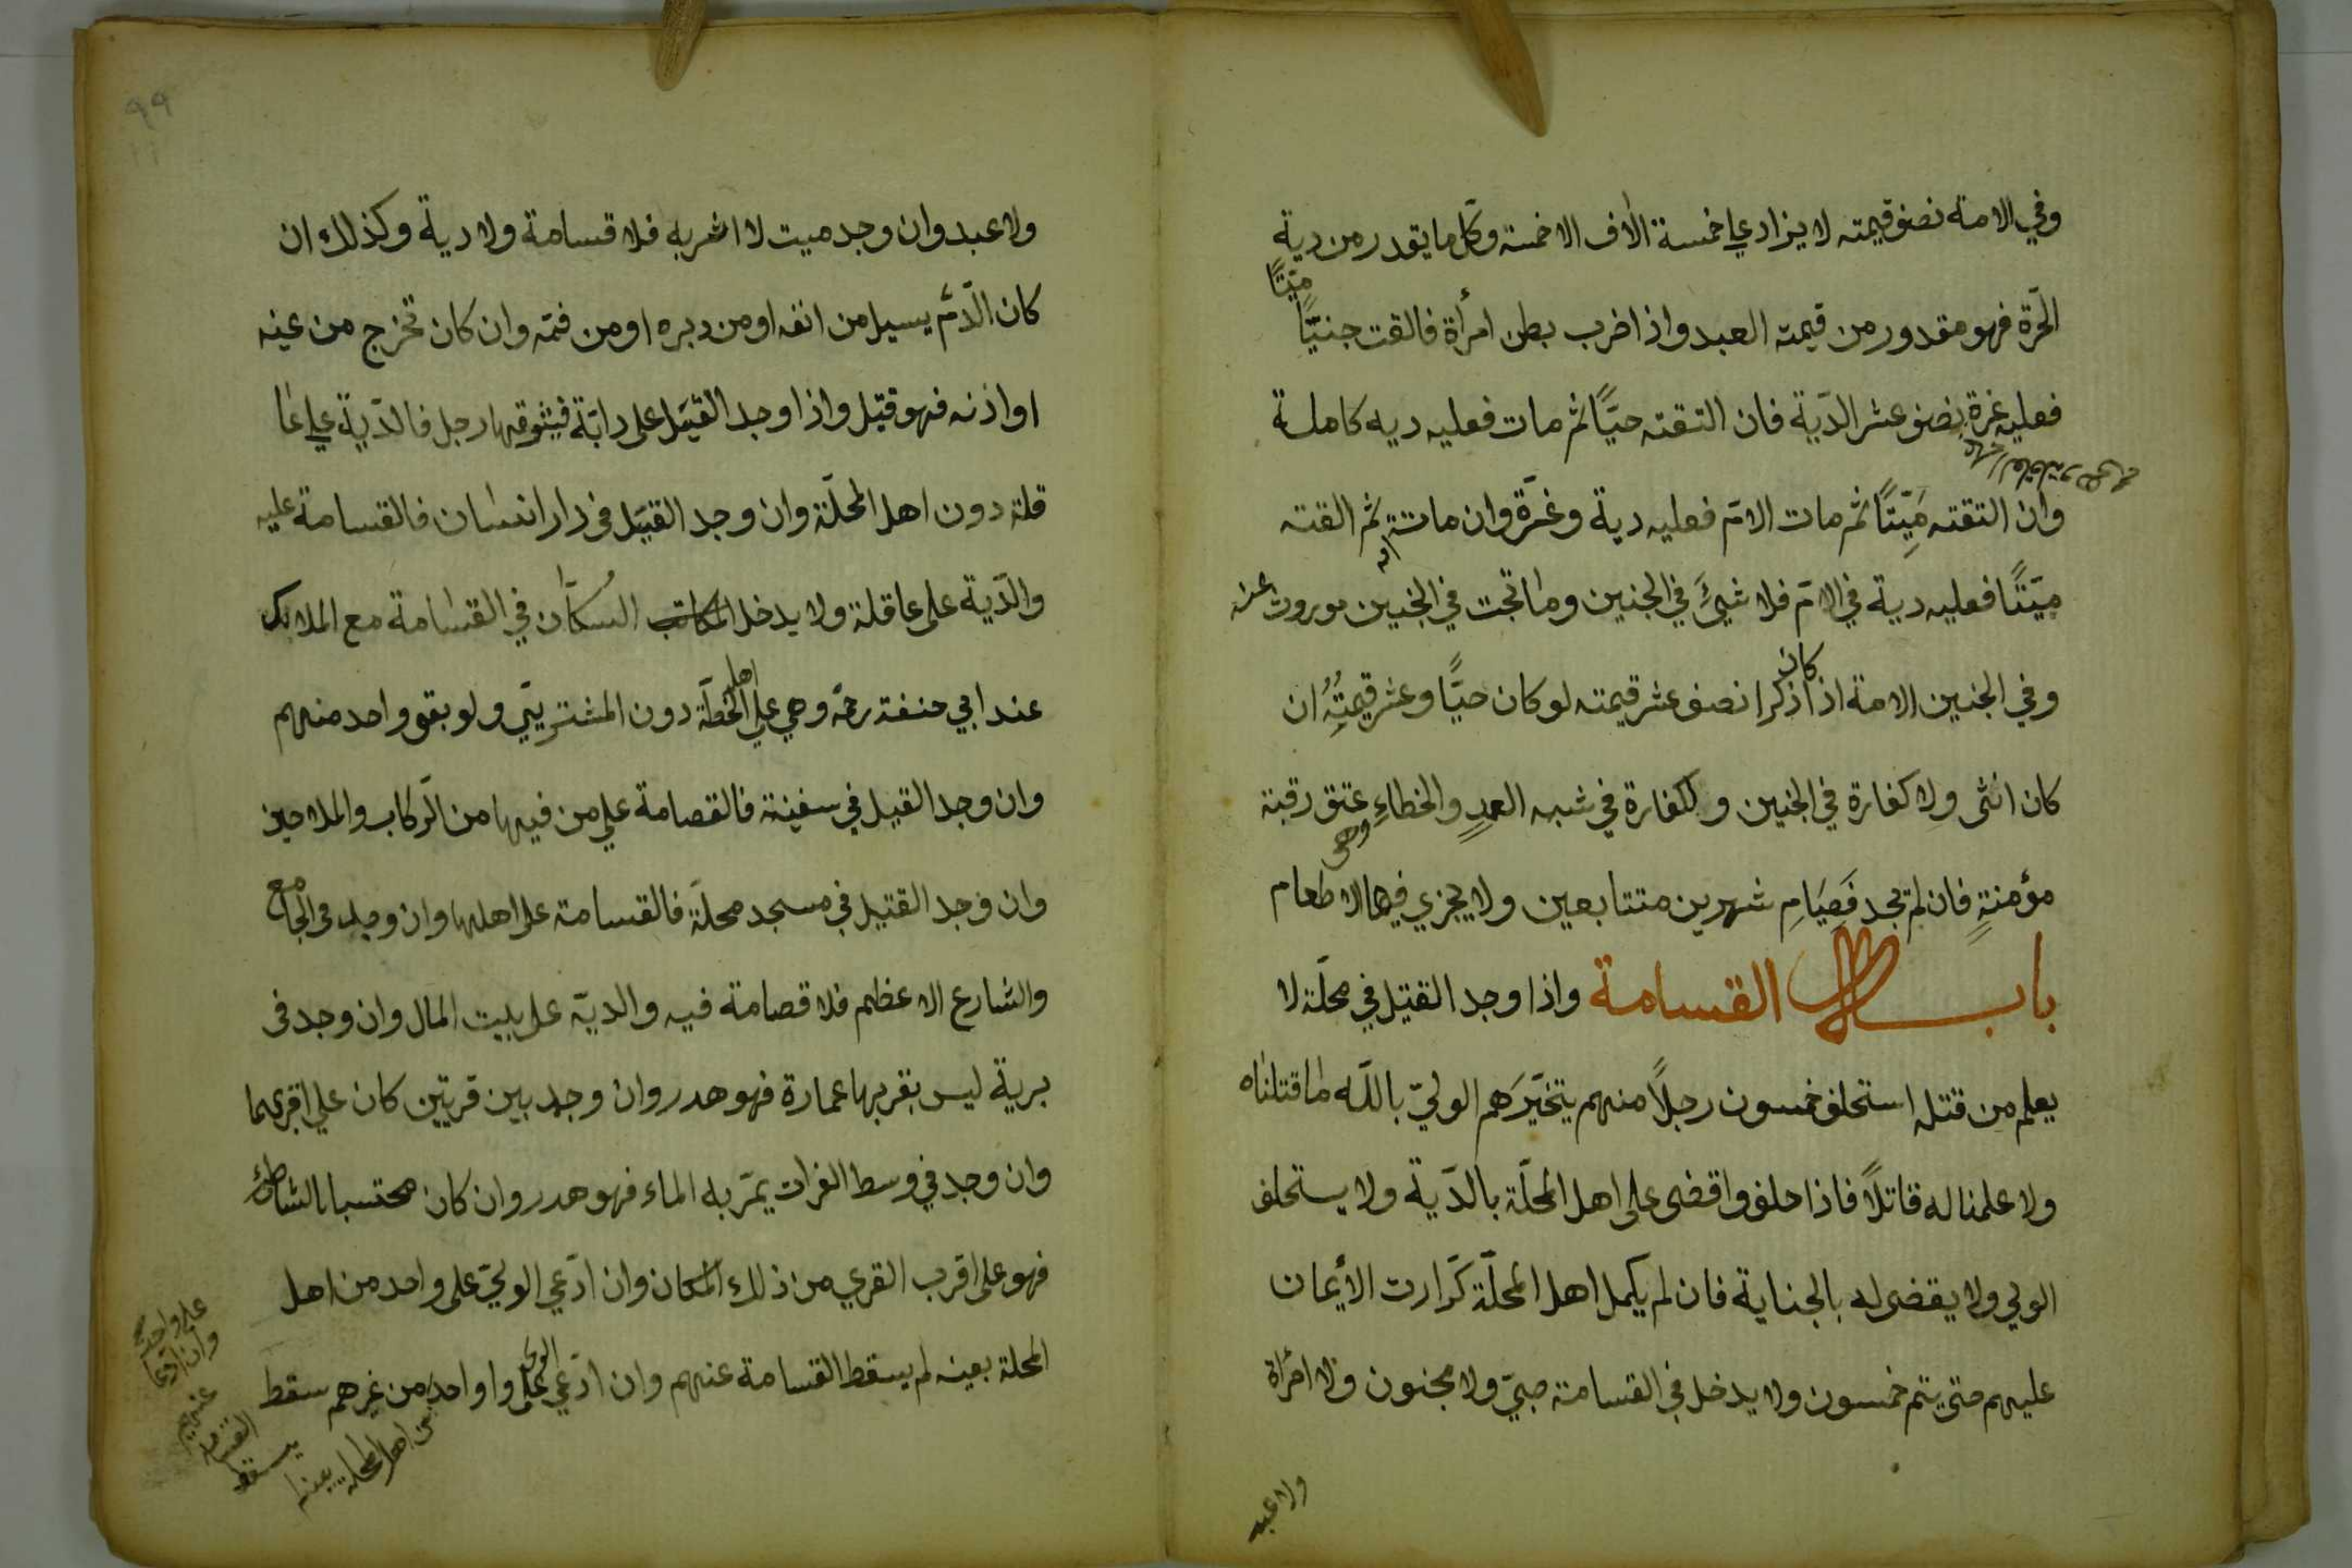 وفي الامة نصف قيمته لا يزاد علي خمسة الاف الا خمسة وكل ما يقدر من دية
الحرة فهو مقدور من قيمته العبد واذا ضرب بطن امرأة فالقت جنيًّا
ميّتًا
فعليه غرة نصف عشر الدّية فان التقته حيًّا ثم مات فعليه ديه كاملة
وان التقته مَيِّتًا ثم مات الامّ فعليه دية وغرّة وان ماتة ثم القته
ميّتًا فعليه دية في الامّ فلا شيئَ في الجنين وما تجت في الجنين موروث عنه
كان
وفي الجنين الامة اذا ذكرا نصف عشر قيمته لو كان حيًّا وعشر قيمتِهُ ان
كان انثى ولا كفارة في الجنين والكفارة في شبه العمدٍ والخطاءِ عتق رقبة
وهى
مؤمنةٍ فان لم تجد فَصِيَامِ شهرين متتابعين ولا يجزي فيها الا طعام
باب القسامة واذا وجد القتيل في محلّة لا
يعلم من قتله استحلف خمسون رجلاً منهم يتخيّرَهم الوليّ باللّه ما قتلناه
ولا علمنا له قاتلاً فاذا حلفوا قضى على اهل المحلّة بالدّية ولا يستحلف
الولي ولا يقضى له بالجناية فان لم يكمل اهل المحلّة كرّارت الأيمان
عليهم حتى يتم خمسون ولا يدخل في القسامة صبيّ ولا مجنون ولا امرأة
ولا عبد
٩٩
ولا عبد وان وجد ميت لا اثر به فلا قسامة ولا دية وكذلك ان
كان الدّم يسيل من انفه او من دبره او من فمّه وان كان تخرج من عينه
او اذنه فهو قتيل واذا وجد القتيل على دابّة فيثوقها رجل فالدّية علي عا
قلة دون اهل المحلّة وان وجد القتيل في دار انسان فالقسامة عليه
والدّية على عاقلة ولا يدخل المكاتب السكّان في القسامة مع الملاك
اهل
عند ابي حنفة رحمّه وهي علي الخطّة دون المشتريّي ولو بقو واحد منهم
وان وجد القيل في سفينة فالقصامة علي من فيها من الرّكاب والملاحين
وان وجد القتيل في مسجد محلّة فالقسامة على اهلها وان وجد في الجامع
والشارع الاعظم فلا قصامة فيه والديّه على بيت المال وان وجد في
برية ليس بقربها عمارة فهو هدر وان وجد بين قريتين كان علي اقربهما
وان وجد في وسط الفرات يمرّ به الماء فهو هدر وان كان محتسبا بالشاطئ
فهو على اقرب القري من ذلك المكان وان ادّعي الوليّ على واحد من اهل
المحلة بعينه لم يسقط القسامة عنهم وان ادّعي الولى على واواحد من غرهم سقط
على واحد
وان ادّعا
عنهم
القسامة
يسقط
من اهل المحلة بعينه